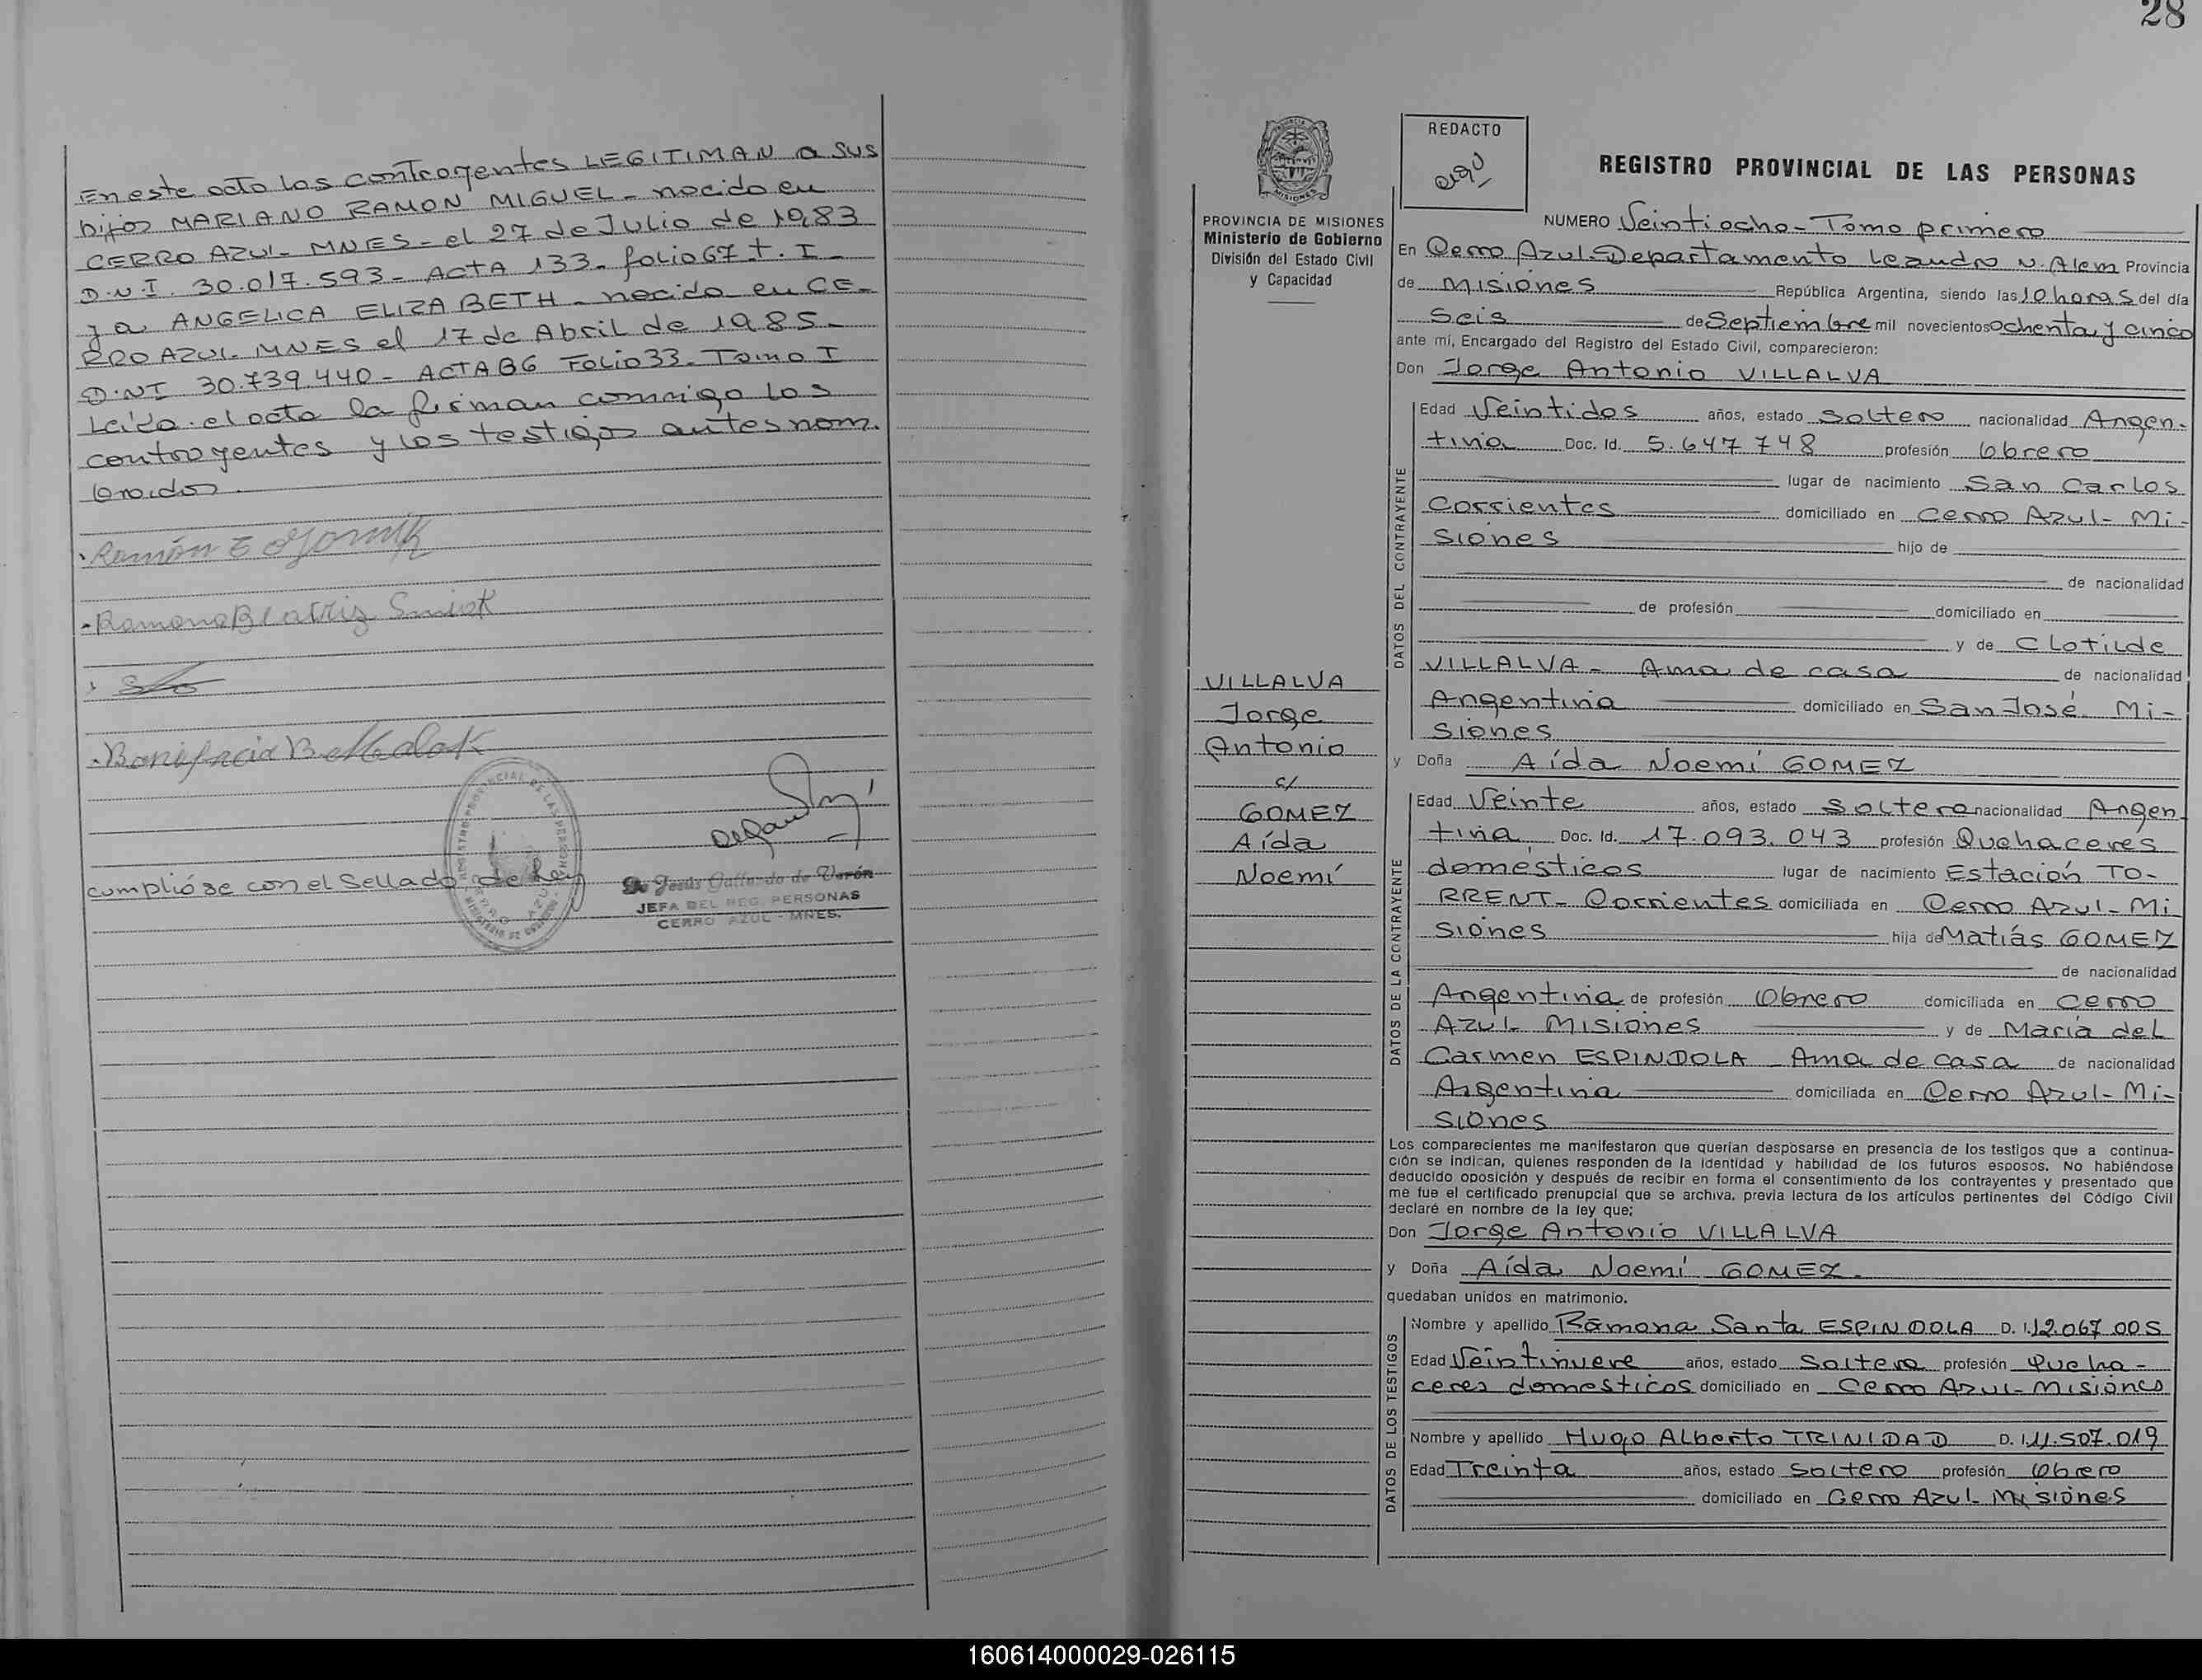 En este acto los contrayentes LEGITIMAN a sus
hijos MARIANO RAMON MIGUEL - nacido en
CERRO AZUL - MNES - el 27 de Julio de 1983
D.N.I. 30.017.593 - ACTA 133 - folio 67 t. I -
y a ANGELICA ELIZABETH - nacida en CE-
RRO AZUL - MNES el 17 de Abril de 1985 -
D.NI 30.739.440 - ACTA 86 Folio 33 - Tomo I
Leída el acta la firman conmigo los
contrayentes y los testigos antes nom.
brados.
Ramón
Ramona Beatriz
Bonifacia B.
cumplióse con el sellado de Ley
Jesús Gallardo de Verón
JEFA DEL REG. PERSONAS
CERRO AZUL - MNES.
28
PROVINCIA DE MISIONES
Ministerio de Gobierno
División del Estado Civil
y Capacidad
VILLALVA
Jorge
Antonio
c/
GOMEZ
Aída
Noemí
REDACTO
REGISTRO PROVINCIAL DE LAS PERSONAS
NUMERO Veintiocho - Tomo primero
En Cerro Azul - Departamento Leandro N. Alem Provincia
de Misiones República Argentina, siendo las 10 horas del día
Seis de Septiembre mil novecientos ochenta y cinco
ante mí, Encargado del Registro del Estado Civil, comparecieron:
Don Jorge Antonio VILLALVA
DATOS DEL CONTRAYENTE
Edad Veintidos años, estado Soltero nacionalidad Argen-
tina Doc. Id. 5.647.748 profesión Obrero
lugar de nacimiento San Carlos
Corrientes domiciliado en Cerro Azul - Mi-
siones hijo de
de nacionalidad
de profesión domiciliado en
y de Clotilde
VILLALVA - Ama de casa de nacionalidad
Argentina domiciliado en San José Mi-
siones
y Doña Aída Noemí GOMEZ
DATOS DE LA CONTRAYENTE
Edad Veinte años, estado Soltera nacionalidad Argen
tina Doc. Id. 17.093.043 profesión Quehaceres
domésticos lugar de nacimiento Estación TO-
RRENT - Corrientes domiciliada en Cerro Azul - Mi
siones hija de Matías GOMEZ
de nacionalidad
Argentina de profesión Obrero domiciliada en Cerro
Azul - Misiones y de María del
Carmen ESPINDOLA - Ama de casa de nacionalidad
Argentina domiciliada en Cerro Azul - Mi-
siones
Los comparecientes me manifestaron que querían desposarse en presencia de los testigos que a continua-
ción se indican, quienes responden de la identidad y habilidad de los futuros esposos. No habiéndose
deducido oposición y después de recibir en forma el consentimiento de los contrayentes y presentado que
me fue el certificado prenupcial que se archiva, previa lectura de los artículos pertinentes del Código Civil
declaré en nombre de la ley que:
Don Jorge Antonio VILLALVA
y Doña Aída Noemí GOMEZ
quedaban unidos en matrimonio.
DATOS DE LOS TESTIGOS
Nombre y apellido Ramona Santa ESPINDOLA D. I. 12.067.005
Edad Veintinueve años, estado Soltera profesión Queha-
ceres domésticos domiciliado en Cerro Azul - Misiones
Nombre y apellido Hugo Alberto TRINIDAD D. I. 11.507.019
Edad Treinta años, estado Soltero profesión Obrero
domiciliado en Cerro Azul - Misiones
160614000029-026115